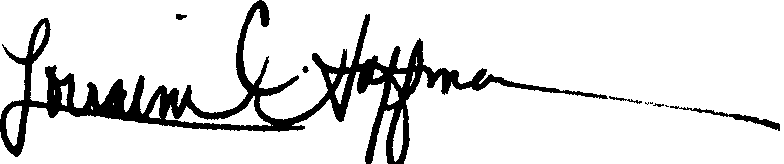 Lorraine C. Hoffman